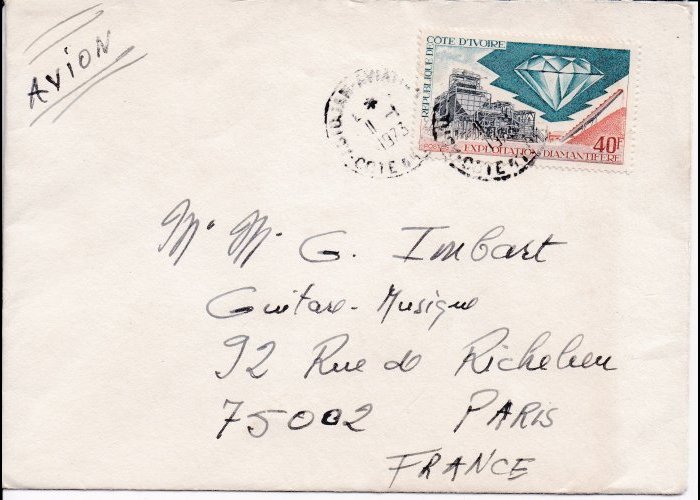 AVION
REPUBLIQUE DE COTE D'IVOIRE
EXPLOITATION DIAMANTIFERE
40F
1973
COTE
Mr M. G. Imbart
Guitare-Musique
92 Rue de Richelieu
75002 PARIS
FRANCE